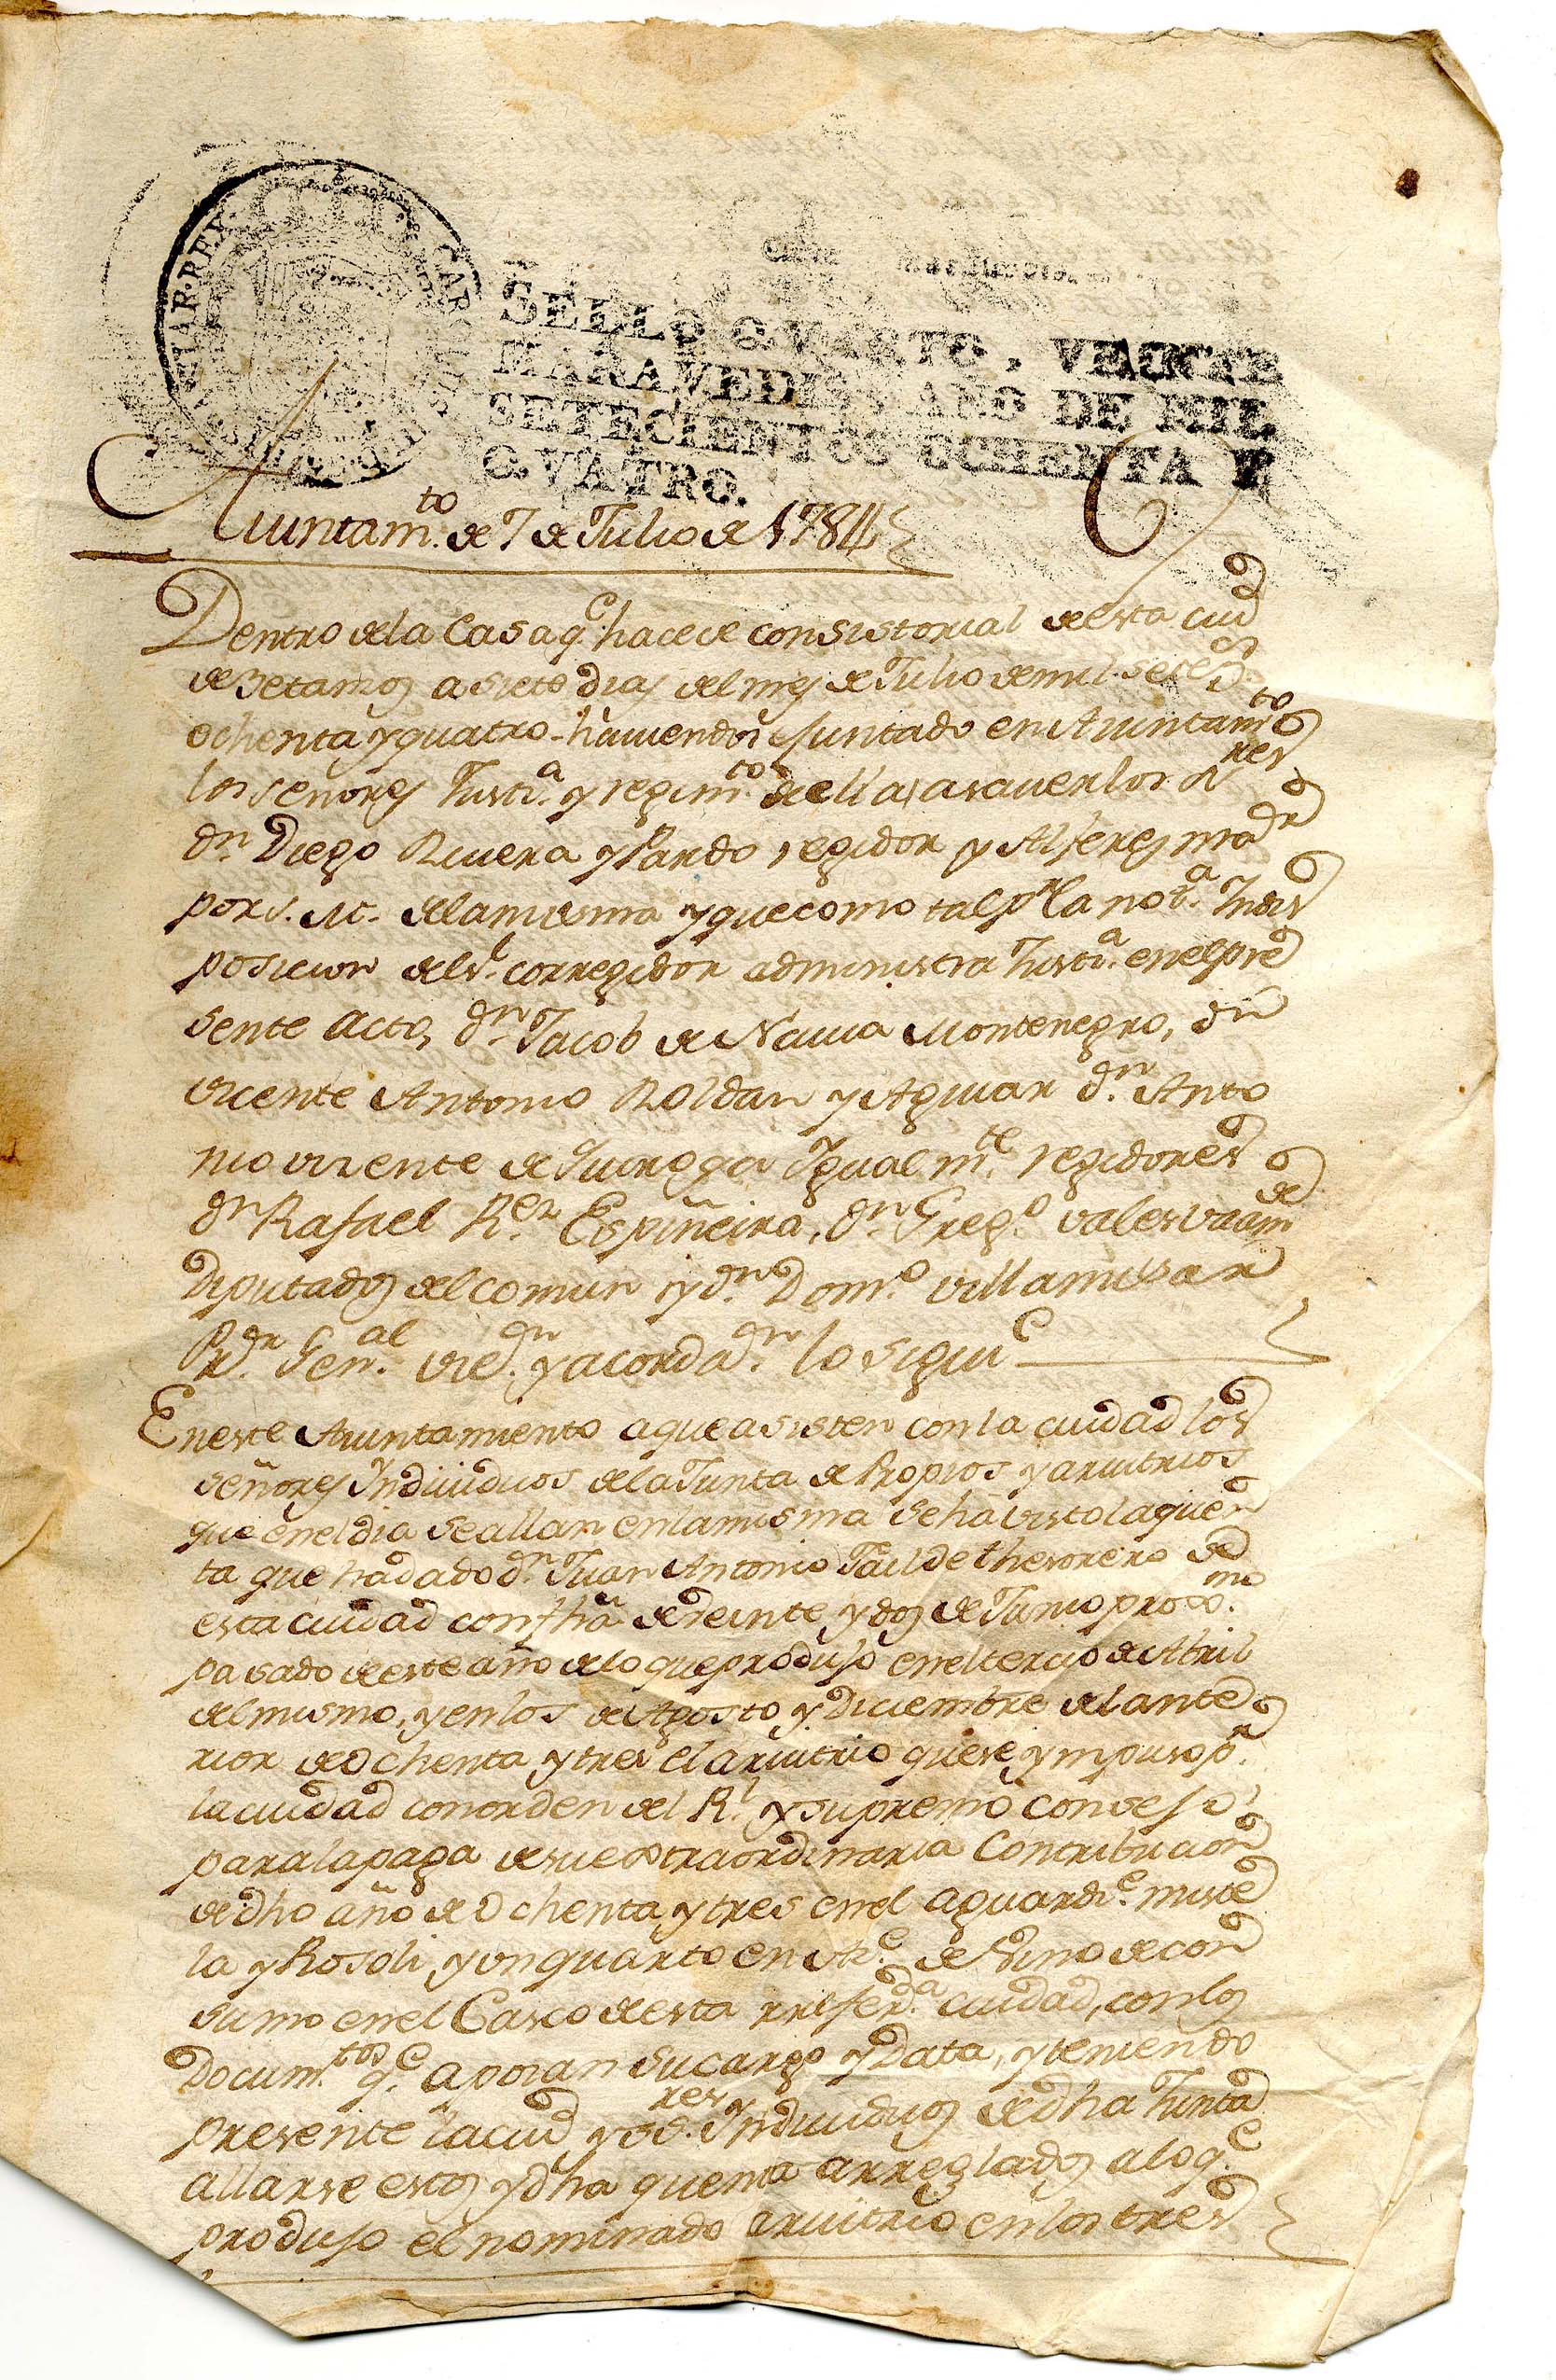 SELLO QVARTO, VEINTE
MARAVEDIS, AÑO DE MIL
SETECIENTOS OCHENTA Y
QVATRO.
Aiuntam.to de 7 de Julio de 1784
Dentro de la Casa q.e hace de consistorial de esta ciud
de Betanzos a siete dias del mes de Julio de mil setes.
ochenta y quatro haviendose juntado en Aiuntamto
los señores Justi.a y regim.to de ella, asaver los SSres
dn. Diego Rivera y Pardo regidor y Alferez maor
por S. M. de la misma y que como tal pr. la nota. Indis
posicion del Sr. corregidor administra Justi.a en el pre
sente acto, dn. Jacob de Navia Montenegro, dn
Vicente Antonio Roldan y Aguiar dn. Anto
nio vizente de Quiroga Igualm.te regidores
dn Rafael R.ez Espiñeira, dn. Greg.o vales vaam.de
Diputados del comun y dn. Dom.o villamisar
P.dr Gen.al vie.dn y acorda.dn lo siguie
En este Aiuntamiento a que asisten con la ciudad los
señores Indiuiduos de la Junta de Propios y aruitrios
que en el dia se allan en la misma se há visto la quen
ta que ha dado dn. Juan Antonio Tailde thesorero de
esta ciudad con fha de veinte y dos de Junio proxo.mo
pasado de este año de lo que produjo en el tercio de Abril
del mismo, y en los de Agosto y Diciembre del ante
rior de ochenta y tres el aruitrio que se ympuso pr.
la ciudad con orden del Rl. y supremo consejo
para la paga de su extraordinaria Contribucion
de dho año de ochenta y tres en el aguardi.e miste
la y Rosoli, y un quarto en Az.e de vino de con
sumo en el Casco de esta referda. ciudad, con los
Docum.tos q.e apoian su cargo y Data, y teniendo
presente la ciud y SS.res Indiuiduos de dha Junta
allarse estos y dha quenta arreglados a lo q.e
produjo el nominado aruitrio en los tres